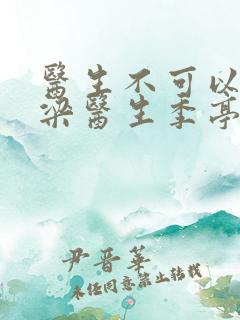 醫生不可以
梁醫生季亭
尹晋華
未经同意禁止转载